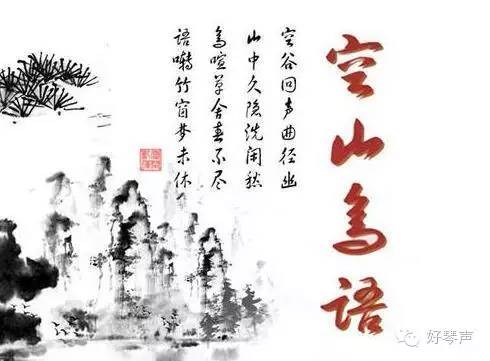 空山鸟语
空谷回声曲径幽
山中久隐洗闲愁
鸟喧草舍春不尽
语啭竹窗梦未休
好琴声